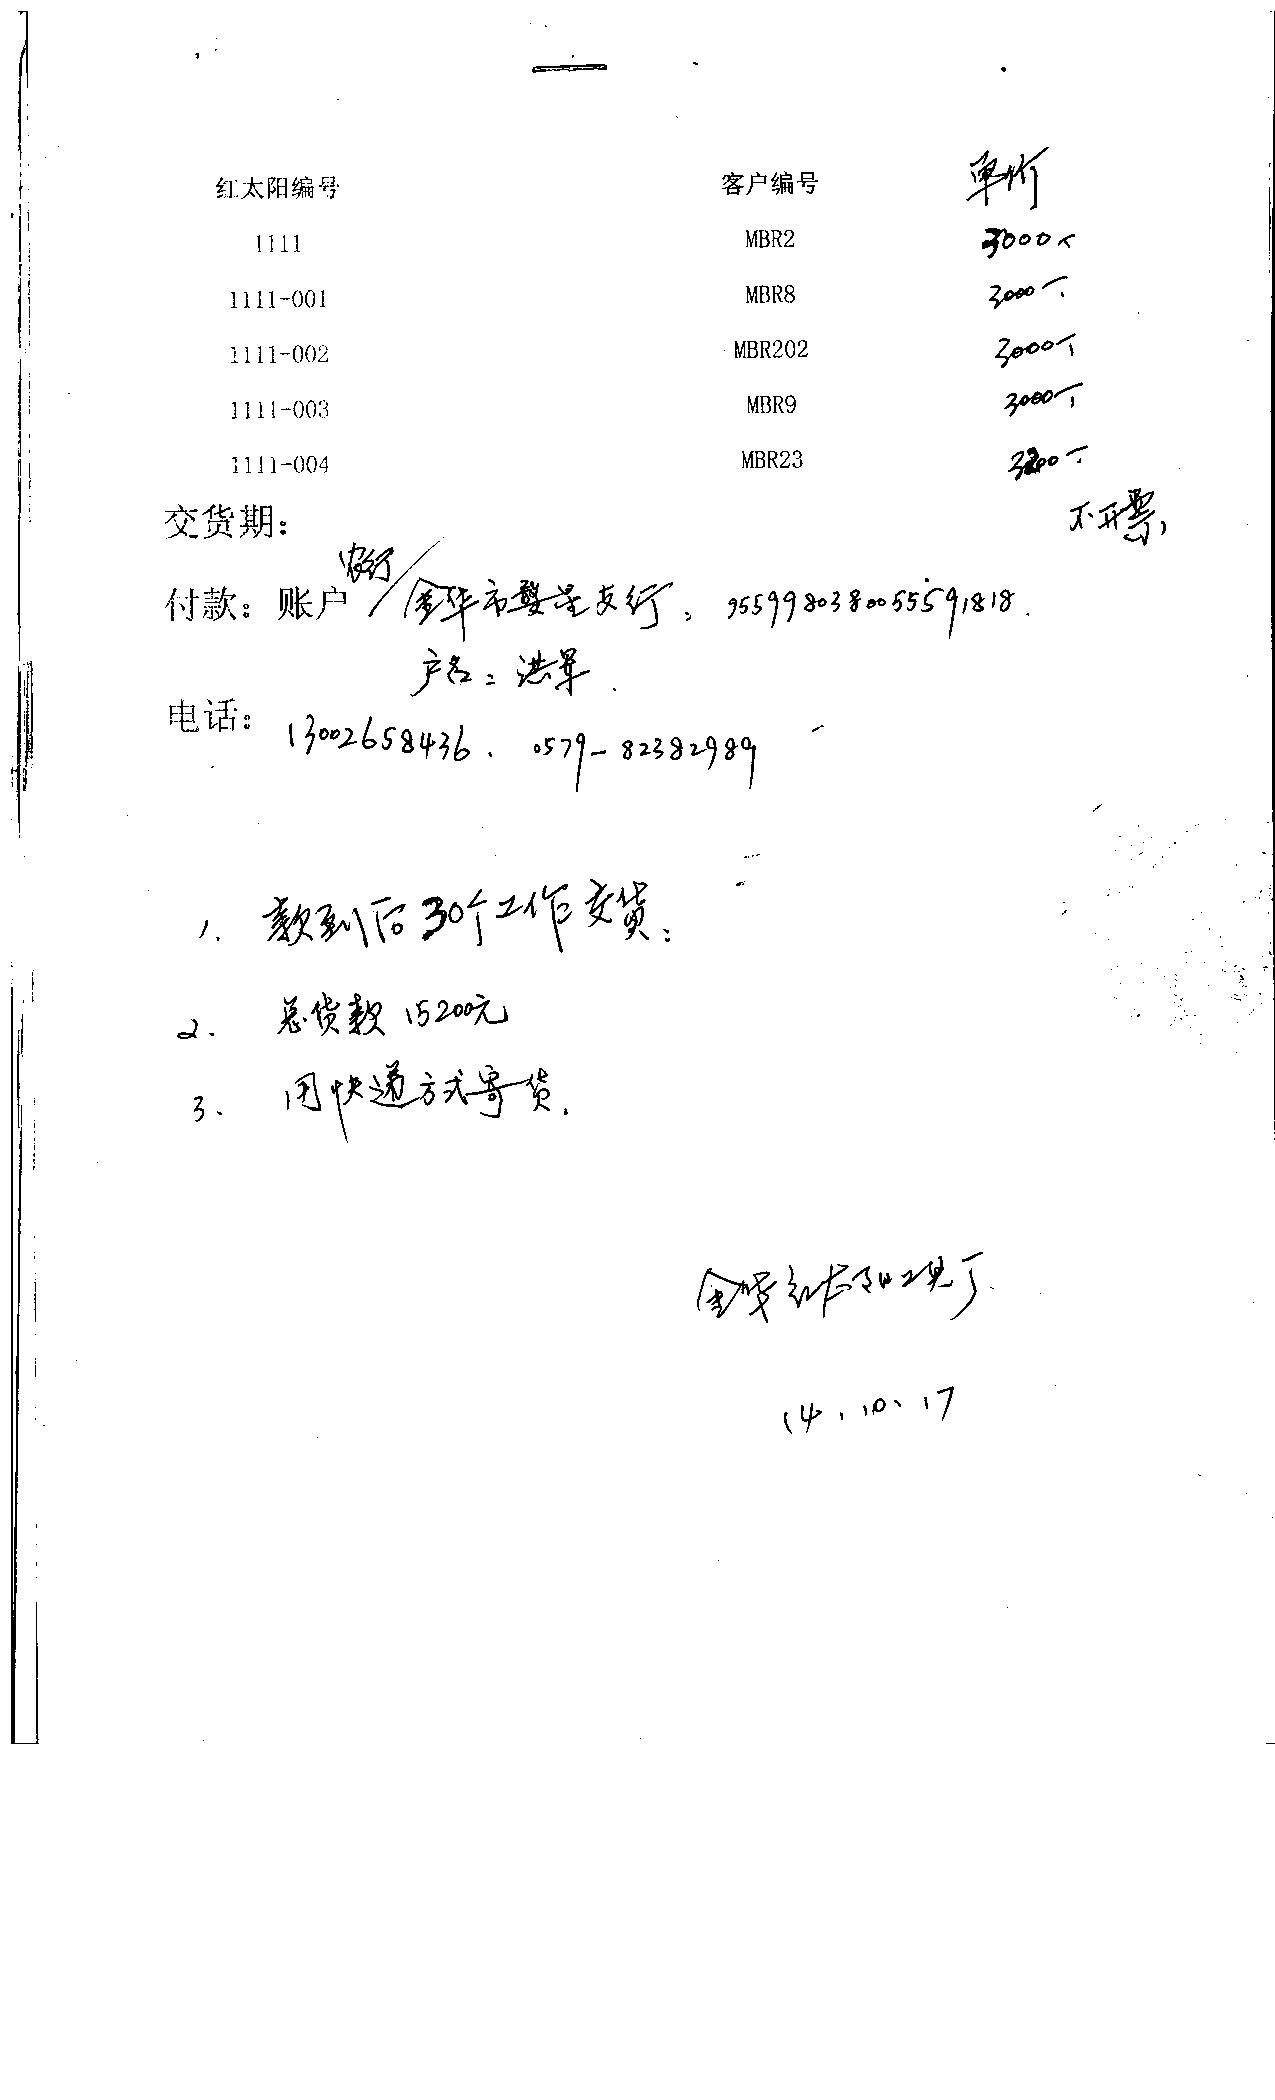 红太阳编号 客户编号 单价
1111 MBR2 3000个
1111-001 MBR8 3000个
1111-002 MBR202 3000个
1111-003 MBR9 3000个
1111-004 MBR23 3200个
交货期: 不开票
付款: 账户 农行/金华市婺星支行: 9559980380055591818.
户名: 洪军.
电话: 13002658436. 0579-82382989
1. 款到后30个工作交货:
2. 总货款15200元
3. 用快递方式寄货.
金华红太阳工具厂.
14.10.17